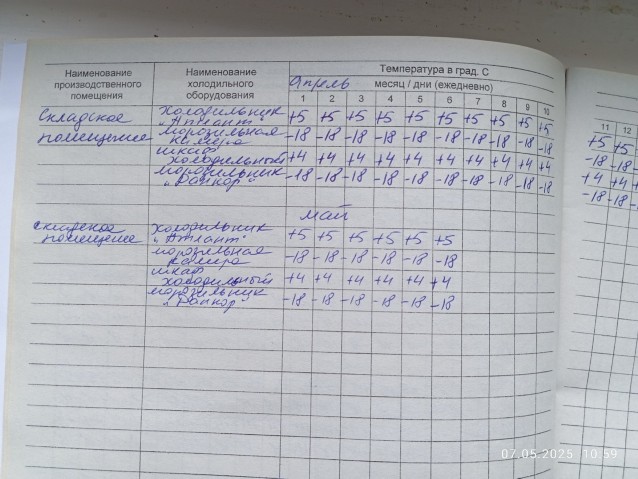 Наименование производственного помещения
Наименование холодильного оборудования
Температура в град. С
Апрель месяц / дни (ежедневно)
1 2 3 4 5 6 7 8 9 10 11 12
Складское помещение
холодильник „Атлант" +5 +5 +5 +5 +5 +5 +5 +5 +5 +5 +5 +5
морозильная камера -18 -18 -18 -18 -18 -18 -18 -18 -18 -18 -18 -18
шкаф холодильный +4 +4 +4 +4 +4 +4 +4 +4 +4 +4 +4 +4
морозильник -18 -18 -18 -18 -18 -18 -18 -18 -18 -18 -18 -18
май
складское помещение
холодильник „Атлант" +5 +5 +5 +5 +5 +5
морозильная камера -18 -18 -18 -18 -18 -18
шкаф холодильный +4 +4 +4 +4 +4 +4
морозильник -18 -18 -18 -18 -18 -18
07.05.2025 10:59